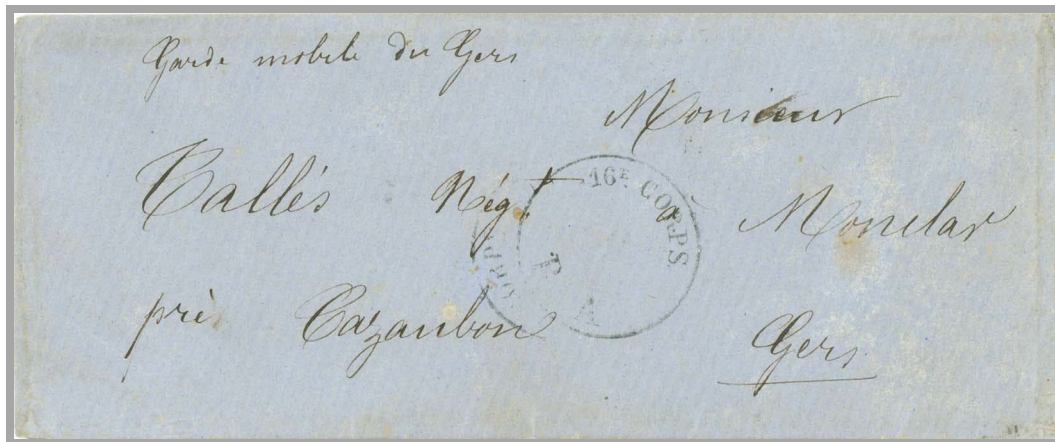 Garde mobile du Gers
Monsieur
Tallés Nég.t à Monclar
près Cazaubon
Gers
16E CORPS.